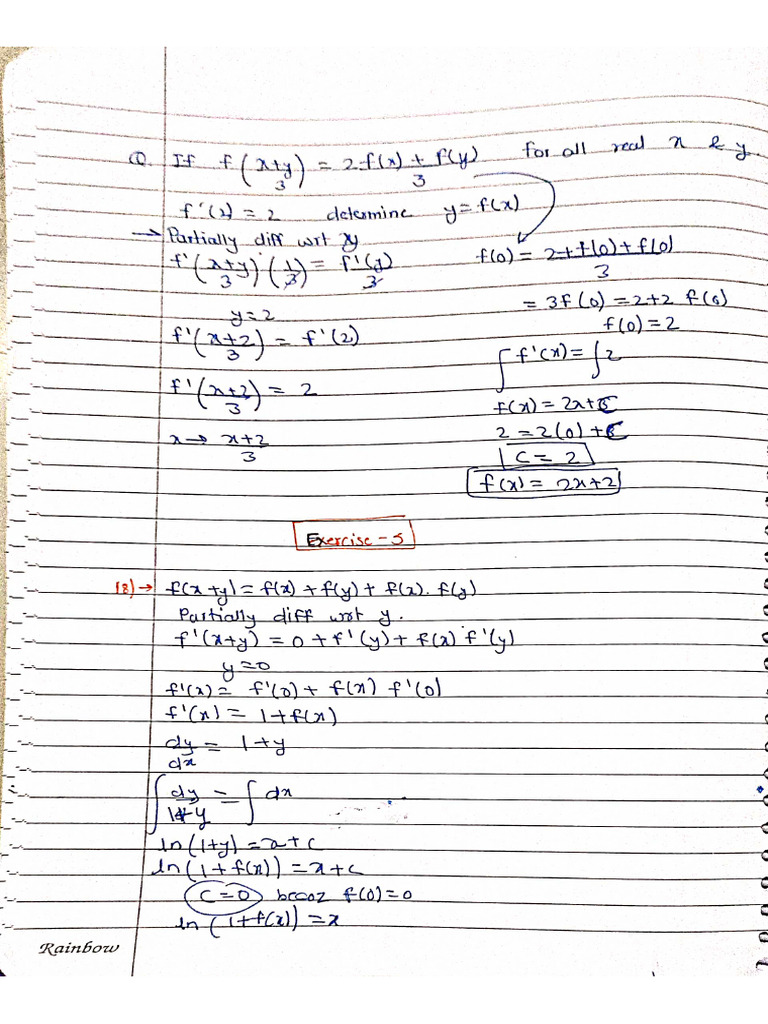 Q. If f(x+y/3) = 2+f(x)+f(y)/3 for all real x & y
f'(2) = 2 determine y=f(x)
→ Partially diff wrt y
f'(x+y/3)(1/3) = f'(y)/3
y=2
f'(x+2/3) = f'(2)
f'(x+2/3) = 2
x→ x+2/3
f(0) = 2+f(0)+f(0)/3
= 3f(0) = 2+2 f(0)
f(0) = 2
∫f'(x) = ∫2
f(x) = 2x+C
2 = 2(0)+C
C = 2
f(x) = 2x+2
Exercise-5
18)→ f(x+y) = f(x)+f(y)+f(x).f(y)
Partially diff wrt y.
f'(x+y) = 0+f'(y)+f(x) f'(y)
y=0
f'(x) = f'(0)+f(x) f'(0)
f'(x) = 1+f(x)
dy/dx = 1+y
∫dy/1+y = ∫dx
ln(1+y) = x+c
ln(1+f(x)) = x+c
C=0 becoz f(0)=0
ln(1+f(x)) = x
Rainbow